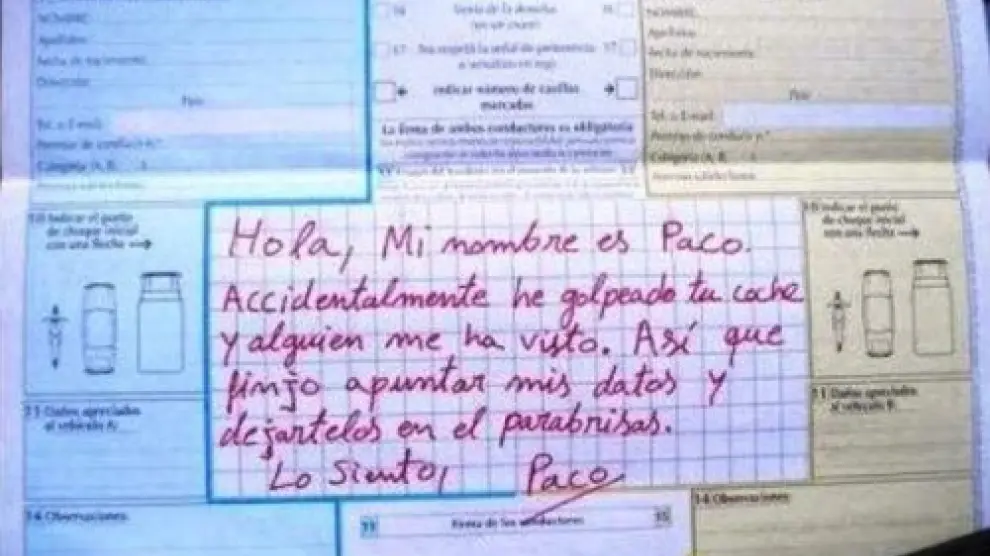 NOMBRE:
Apellidos:
fecha de nacimiento:
Dirección:
País:
Tel. o E-mail:
Permiso de conducir n.º
Categoría (A, B, )
16
16
(en un cruce)
17
No respetó la señal de
17
indicar número de casillas
marcadas
La firma de ambos conductores es obligatoria
NOMBRE:
Apellidos:
fecha de nacimiento:
Dirección:
País:
Tel. o E-mail:
Permiso de conducir n.º
Categoría (A, B, )
10 Indicar el punto
de choque inicial
con una flecha
Hola, Mi nombre es Paco.
Accidentalmente he golpeado tu coche
y alguien me ha visto. Así que
finjo apuntar mis datos y
dejartelos en el parabrisas.
Lo siento, Paco
10 Indicar el punto
de choque inicial
con una flecha
11 Daños apreciados
al vehículo A:
11 Daños apreciados
al vehículo B:
14 Observaciones:
15
Firma de los conductores
15
14 Observaciones: